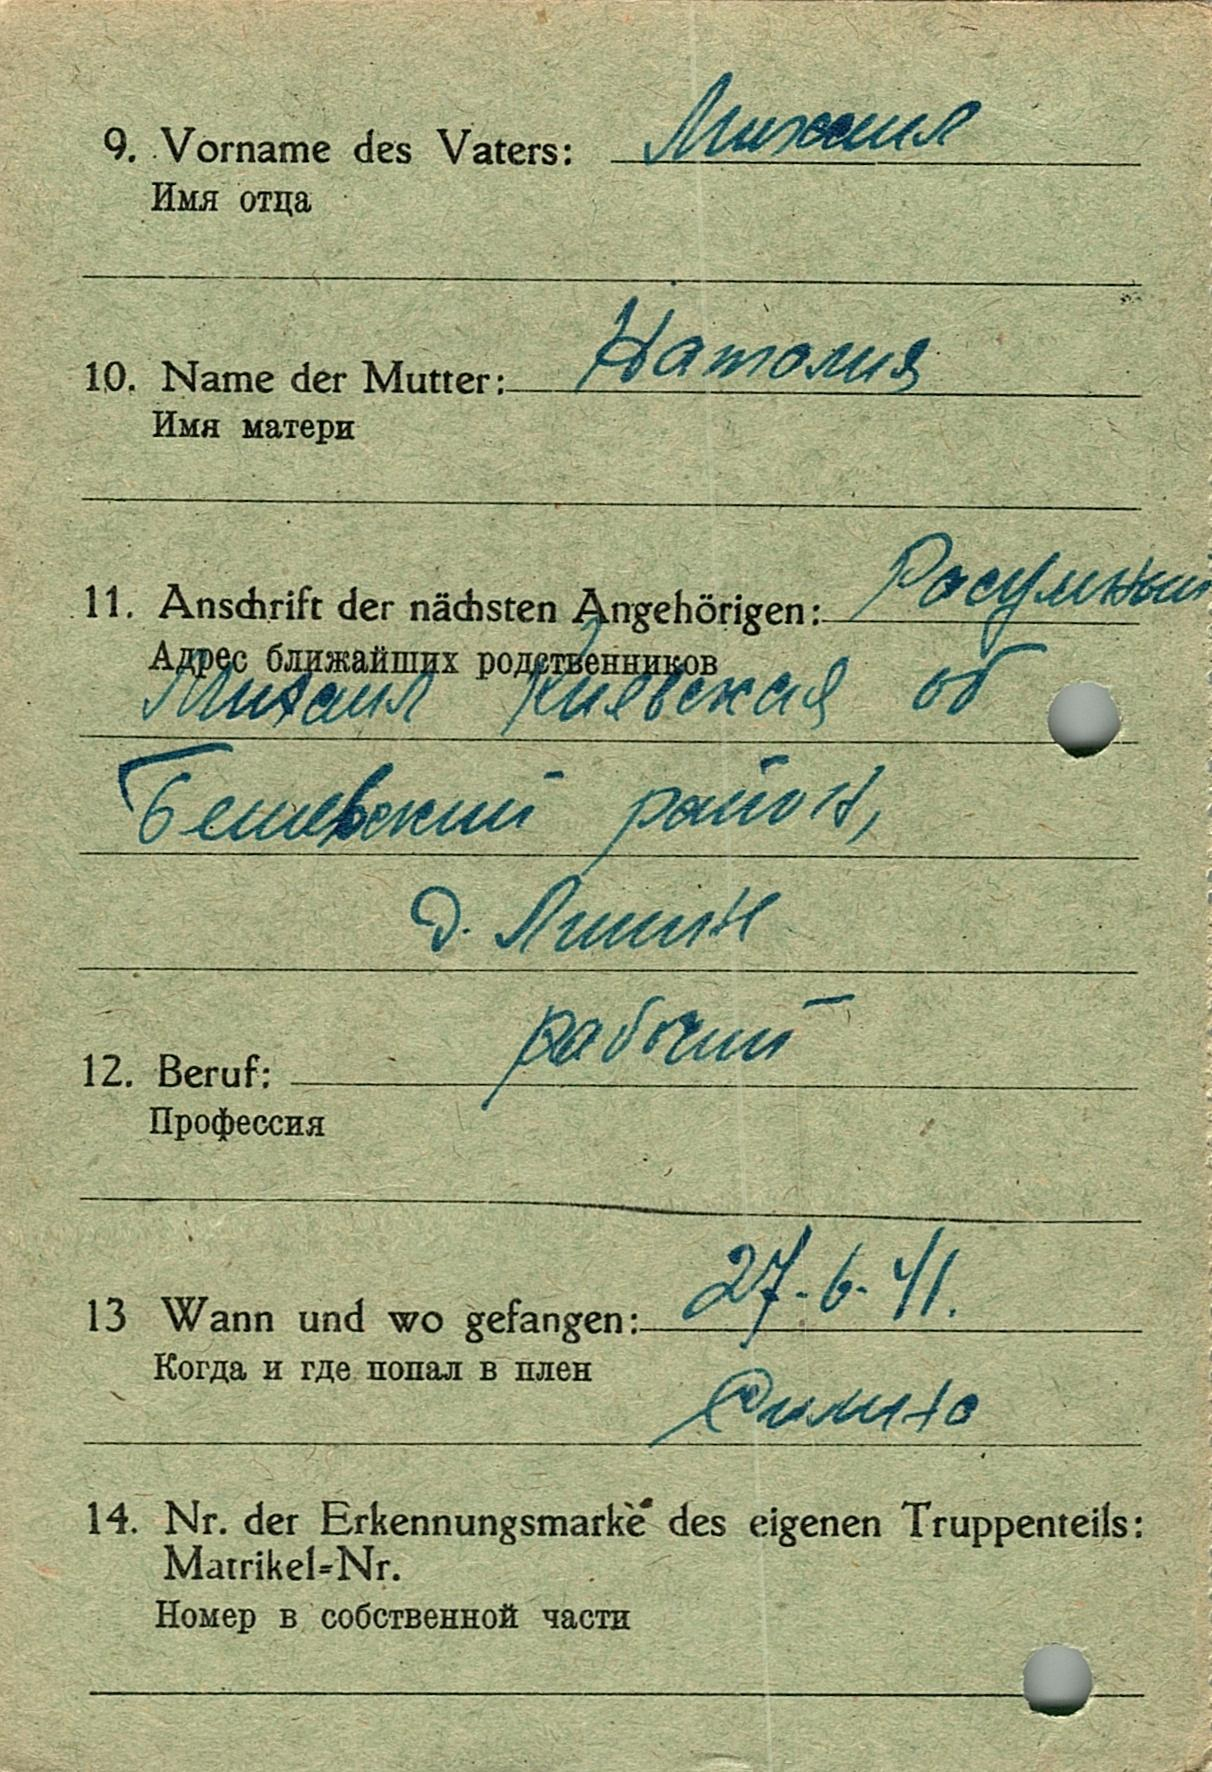 9. Vorname des Vaters: Михаил
Имя отца
10. Name der Mutter: Наталия
Имя матери
11. Anschrift der nächsten Angehörigen: Расумный
Адрес ближайших родственников
Михаил Киявская об
район,
д.
12. Beruf: рабочий
Профессия
13 Wann und wo gefangen: 27.6.41.
Когда и где попал в плен
14. Nr. der Erkennungsmarke des eigenen Truppenteils:
Matrikel=Nr.
Номер в собственной части